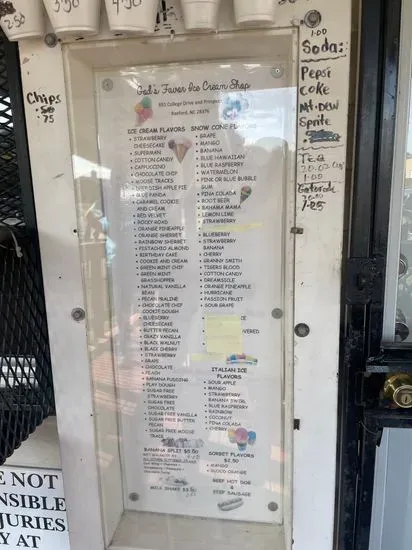 2.50
3.50
4.50
Chips
.50
75
1.00
Soda:
Pepsi
Coke
Mt. Dew
Sprite
Tea
1.00
Gatorade
God's Favor Ice Cream Shop
691 College Drive and Prospect
Raeford, NC 28376
ICE CREAM FLAVORS
STRAWBERRY
CHEESECAKE
SUPERMAN
COTTON CANDY
CAPPUCCINO
CHOCOLATE CHIP
MOOSE TRACKS
DEEP DISH APPLE PIE
BLUE PANDA
CARAMEL COOKIE
AND CREAM
RED VELVET
ROCKY ROAD
ORANGE PINEAPPLE
ORANGE SHERBET
RAINBOW SHERBET
PISTACHIO ALMOND
BIRTHDAY CAKE
COOKIE AND CREAM
GREEN MINT CHIP
GREEN MINT
GRASSHOPPER
NATURAL VANILLA
BEAN
PECAN PRALINE
CHOCOLATE CHIP
COOKIE DOUGH
BLUEBERRY
CHEESECAKE
BUTTER PECAN
CRAZY VANILLA
BLACK WALNUT
BLACK CHERRY
STRAWBERRY
GRAPE
CHOCOLATE
PEACH
BANANA PUDDING
PLAY DOUGH
SUGAR FREE
STRAWBERRY
SUGAR FREE
CHOCOLATE
SUGAR FREE VANILLA
SUGAR FREE BUTTER
PECAN
SUGAR FREE MOOSE
TRACK
BANANA SPLIT $5.50
MILK SHAKE
SNOW CONE FLAVORS
GRAPE
MANGO
BANANA
BLUE HAWAIIAN
BLUE RASPBERRY
WATERMELON
PINK OR BLUE BUBBLE
GUM
PINA COLADA
ROOT BEER
BAHAMA MAMA
LEMON LIME
STRAWBERRY
BLUEBERRY
STRAWBERRY
BANANA
CHERRY
GRANNY SMITH
TIGERS BLOOD
COTTON CANDY
DREAMSICLE
ORANGE PINEAPPLE
HURRICANE
PASSION FRUIT
SOUR GRAPE
ITALIAN ICE
FLAVORS
SOUR APPLE
MANGO
STRAWBERRY
BANANA SWIRL
BLUE RASPBERRY
RAINBOW
COCONUT
PINA COLADA
CHERRY
SORBET FLAVORS
$2.50
MANGO
BLOOD ORANGE
BEEF HOT DOG
&
BEEF SAUSAGE
E NOT
NSIBLE
JURIES
Y AT